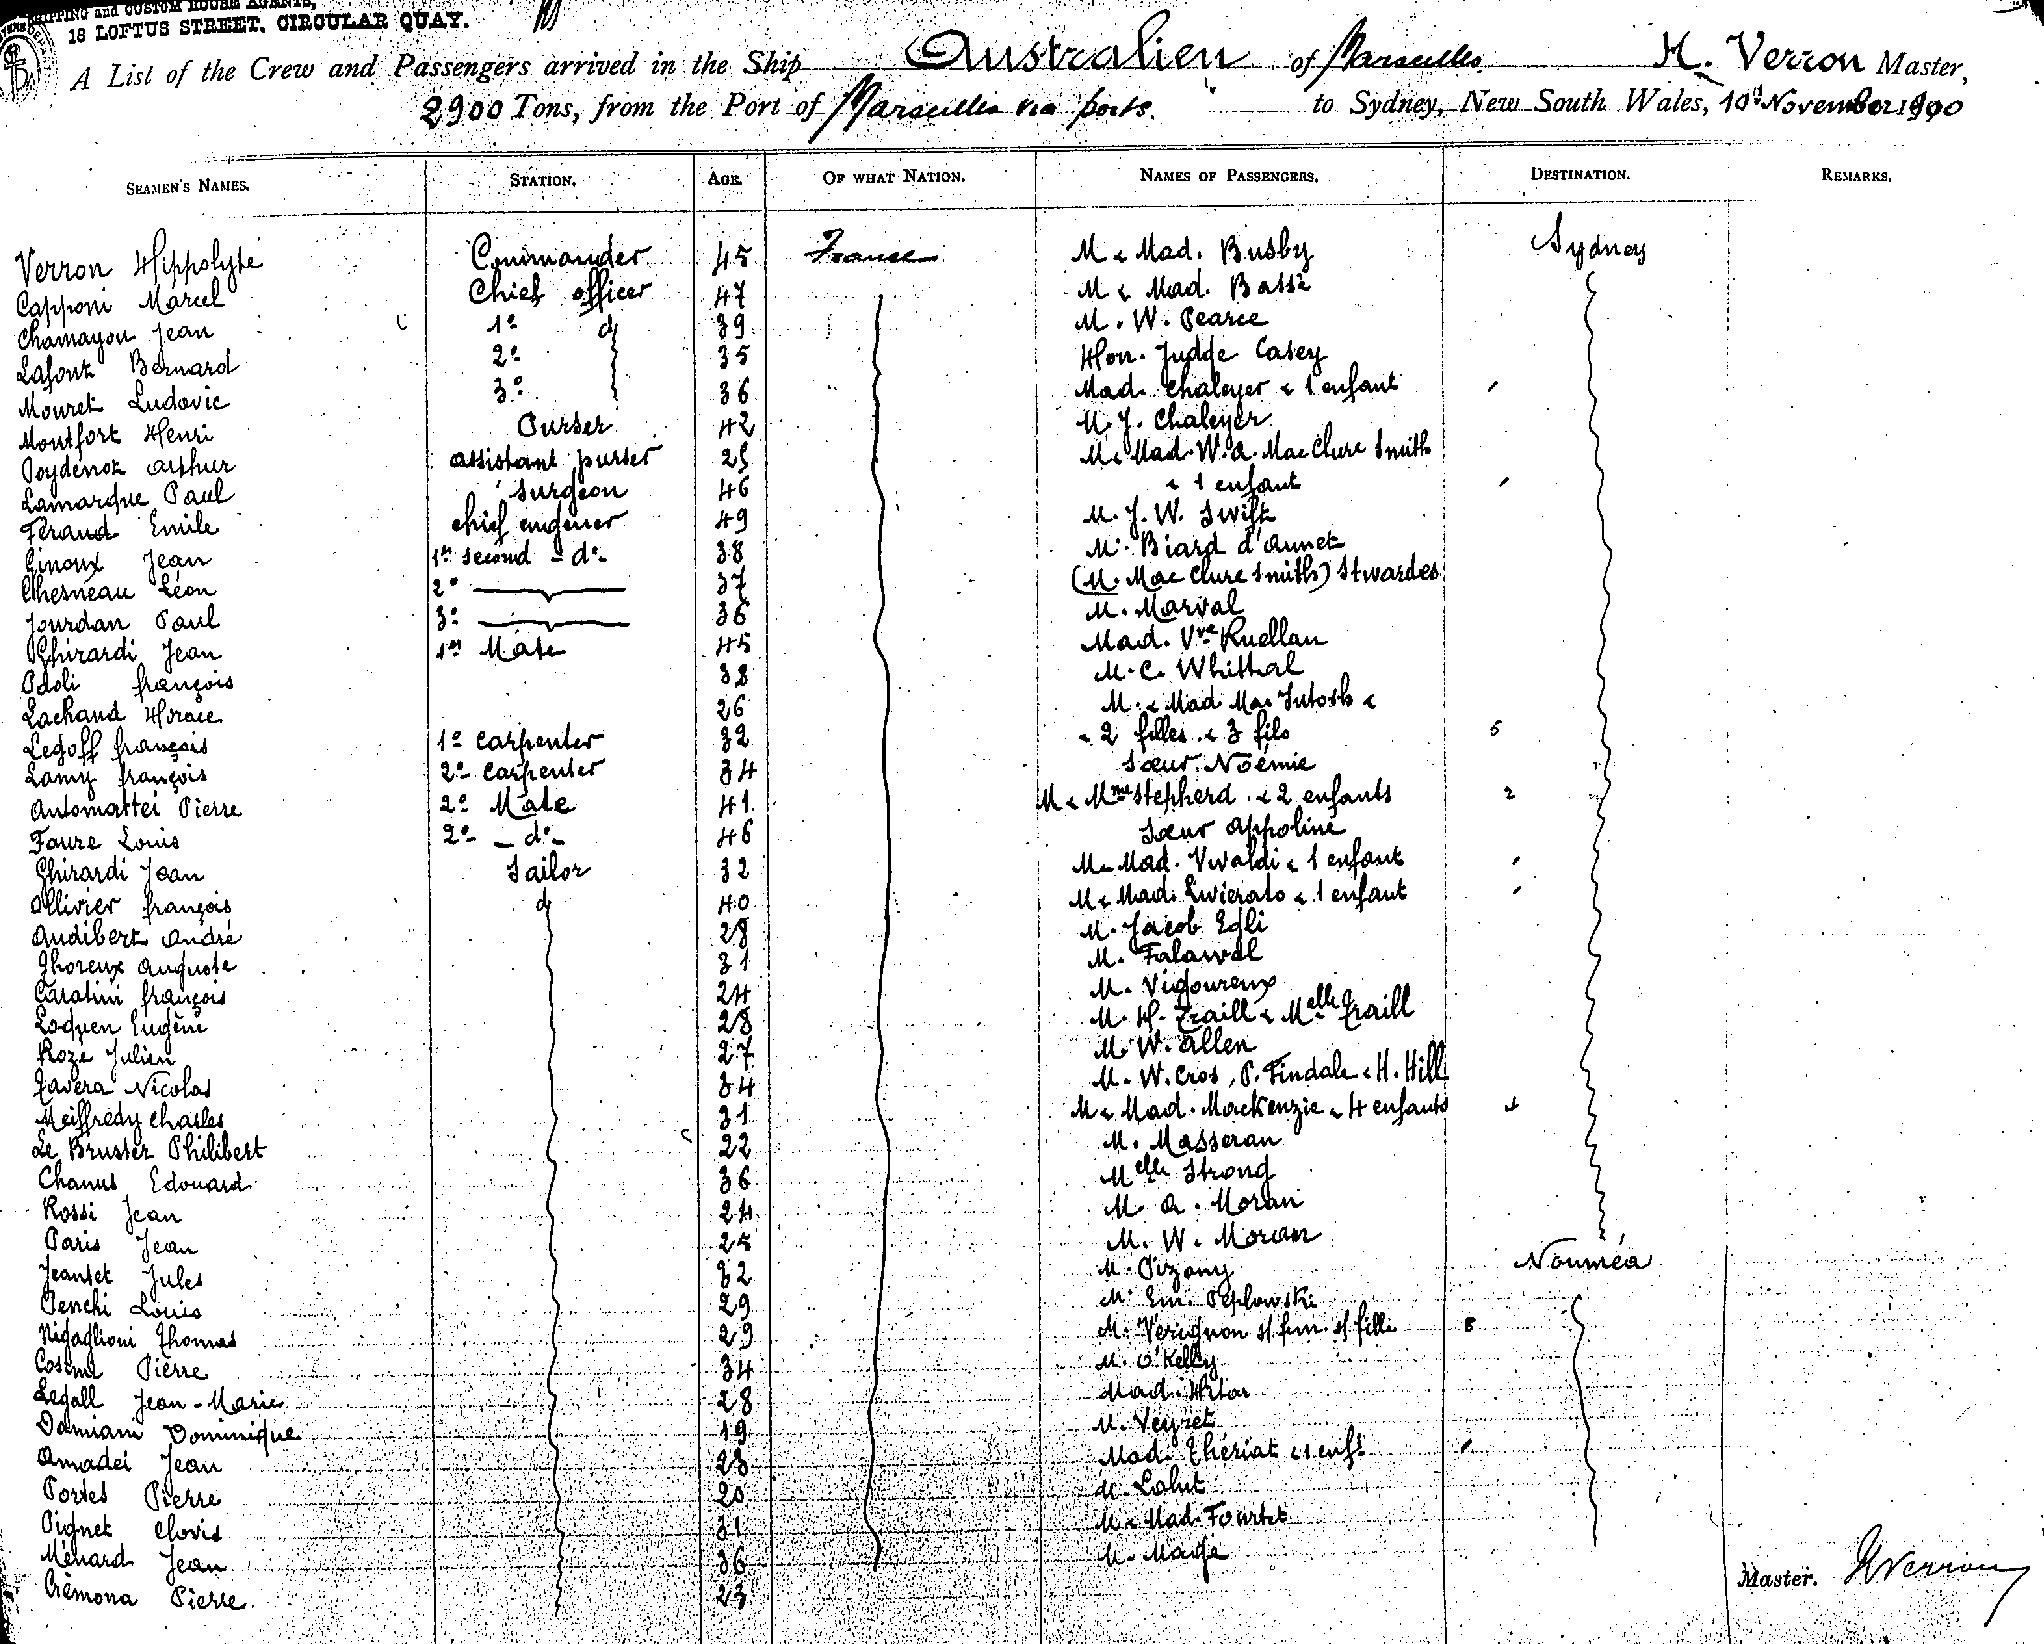 SHIPPING and CUSTOM HOUSE AGENTS,
18 LOFTUS STREET, CIRCULAR QUAY.
A List of the Crew and Passengers arrived in the Ship Australien of Marseilles H. Verron Master,
2900 Tons, from the Port of Marseilles via ports. to Sydney, New South Wales, 10th November 1900
SEAMEN'S NAMES. STATION. AGE OF WHAT NATION. NAMES OF PASSENGERS. DESTINATION. REMARKS.
Verron Hippolyte Commander 45 France M & Mad. Busby Sydney
Capponi Marcel Chief officer 47 M & Mad. Basse
Chamayou Jean 1o do 39 M. W. Pearce
Lafont Bernard 2o 35 Hon. Judge Casey
Mouret Ludovic 3o 36 Mad. Chaleyer & 1 enfant
Montfort Henri Purser 42 M. J. Chaleyer
Poydenot Arthur assistant purser 25 M & Mad. W. A. Mac Clure Smith
Lamarque Paul Surgeon 46 & 1 enfant
Feraud Emile chief engineer 49 M. J. W. Swift
Ginoux Jean 1er second - do - 38 M. Biard d'Aunet
Chesneau Léon 2o 37 (M. Mac Clure Smith) Stwardes
Jourdan Paul 3o 36 M. Marval
Ghirardi Jean 1er Mate 45 Mad. Vve Ruellan
Odoli françois 38 M. C. Whittal
Lachaud Horace 26 M. & Mad Mac Intosh &
Legoff françois 1o carpenter 32 & 2 filles & 3 fils 5
Lamy françois 2o carpenter 34 Sœur Noémie
Antomattei Pierre 2o Mate 41 M & Mme Stepherd & 2 enfants 2
Faure Louis 2o - do - 46 Sœur Appoline
Ghirardi Jean Sailor 32 M & Mad. Vivaldi & 1 enfant
Ollivier françois do 40 M & Mad. Livierato & 1 enfant
Audibert André 28 M. Jacob Egli
Thoreux Auguste 31 M. Falawel
Caratini françois 24 M. Vigoureux
Loquen Eugène 28 M. H. Traill & Melle Traill
Roze Julien 27 M. W. Allen
Tavera Nicolas 34 M. W. Cros, P. Tindale & H. Hill
Meiffredy Charles 31 M & Mad. Mackenzie & 4 enfants 4
Le Bruster Philibert 22 M. Masseran
Chanus Edouard 36 Melle Strong
Rossi Jean 24 M. A. Moran
Paris Jean 25 M. W. Moran
Jeantet Jules 32 M. Pizany Nouméa
Penchi Louis 29 M. Em. Peplowski
Nigaglioni Thomas 29 M. Verignon s/ fem. s/ fille
Cosimi Pierre 34 M. O'Kelly
Legall Jean-Marie 28 Mad.
Damiani Dominique 19 M. Veyret
Amadei Jean 28 Mad. Thériat & 1 enft
Portes Pierre 20 M. Lahut
Pignet Clovis 31 M & Mad. Fourtet
Ménard Jean 36 M.
Crémona Pierre 23
Master. H Verron